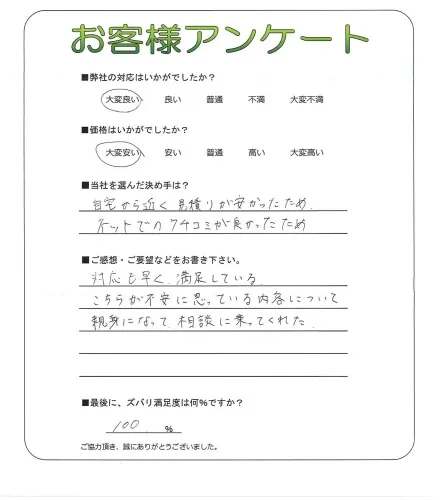 お客様アンケート
■弊社の対応はいかがでしたか？
大変良い 良い 普通 不満 大変不満
■価格はいかがでしたか？
大変安い 安い 普通 高い 大変高い
■当社を選んだ決め手は？
自宅から近く 見積りが安かったため.
ネットでの クチコミが良かったため
■ご感想・ご要望などをお書き下さい。
対応も早く、満足している.
こちらが不安に思っている内容について
親身になって、相談に乗ってくれた.
■最後に、ズバリ満足度は何％ですか？
100 %
ご協力頂き、誠にありがとうございました。